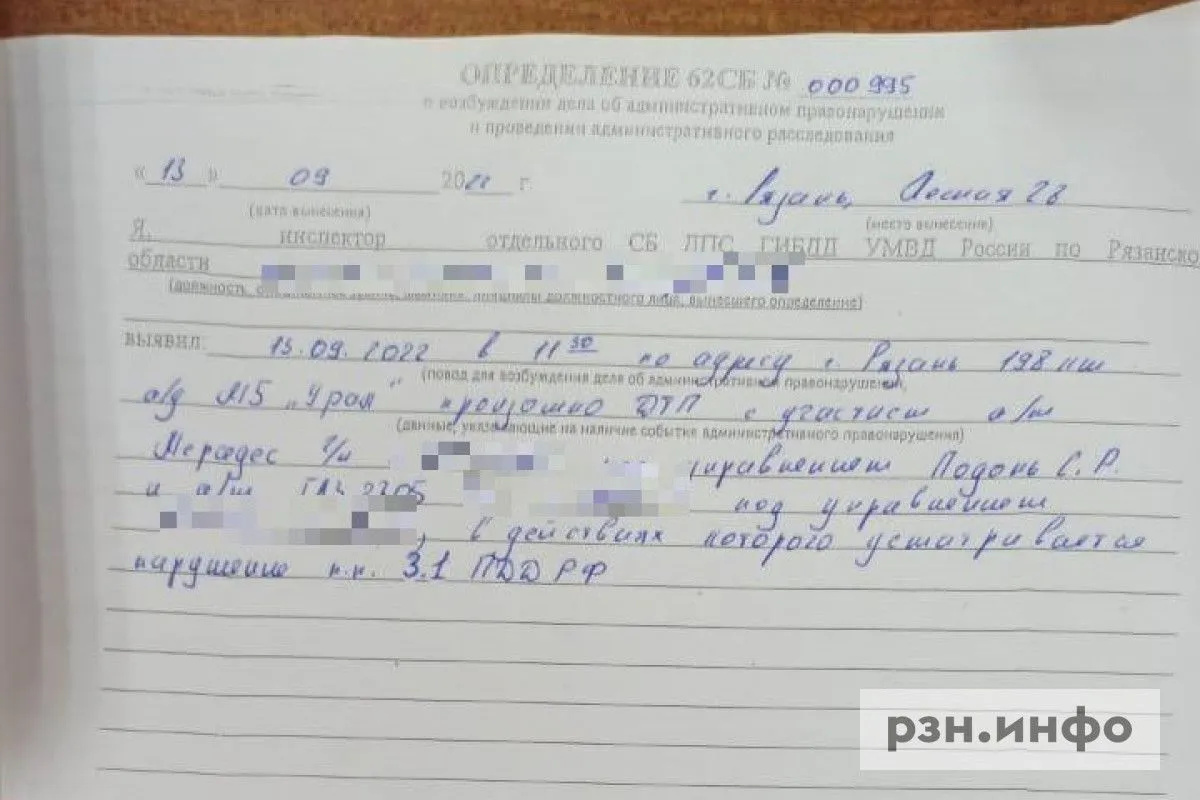 ОПРЕДЕЛЕНИЕ 62СБ № 000995
о возбуждении дела об административном правонарушении
и проведении административного расследования
« 13 » 09 2022 г. г. Рязань, Лесная 28
(дата вынесения) (место вынесения)
Я, инспектор отдельного СБ ДПС ГИБДД УМВД России по Рязанско
области
(должность, вынесшего определение)
выявил: 13.09.2022 в 11 30 по адресу г. Рязань 198 км
(повод для возбуждения дела об административном правонарушении,
а/д М5 „Урал“ произошло ДТП с участием а/м
(данные, указывающие на наличие события административного правонарушения)
Мерседес г/н управлением Подоль С.Р.
и а/м ГАЗ 2705 под управлением
, в действиях которого усматривается
нарушение п.п. 3.1 ПДД РФ
рзн.инфо